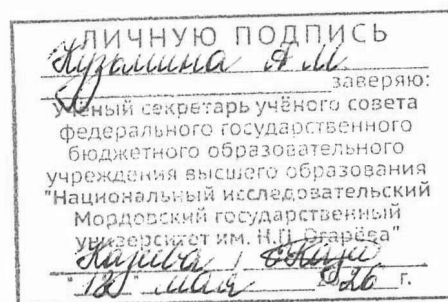 ЛИЧНУЮ ПОДПИСЬ
Кузьмина А М
заверяю:
Учёный секретарь учёного совета
федерального государственного
бюджетного образовательного
учреждения высшего образования
"Национальный исследовательский
Мордовский государственный
университет им. Н.П. Огарёва"
"18" мая 26 г.